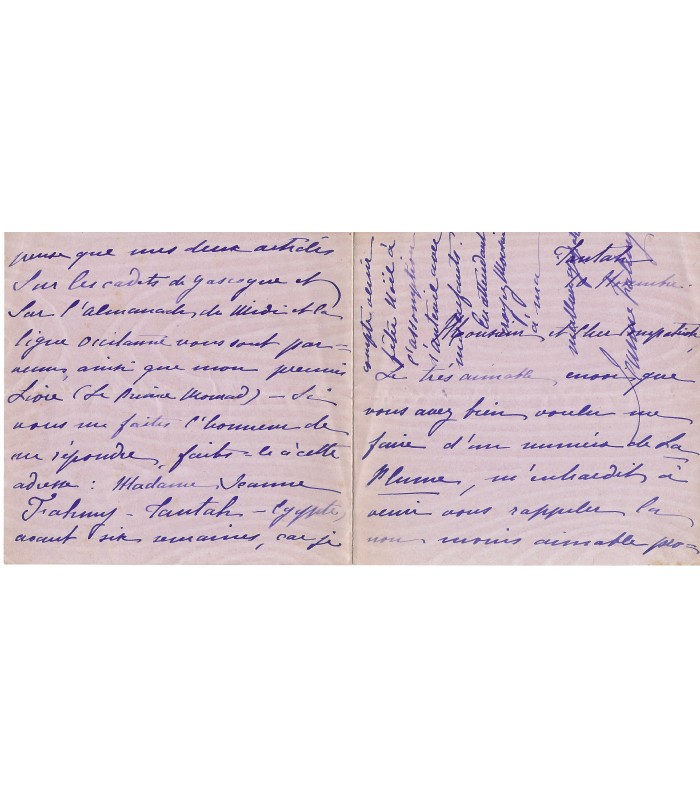 Tantah
Monsieur et Cher Compatriote,
Le très aimable envoi que
vous avez bien voulu me
faire d'un numéro de La
Plume, m'enhardit à
venir vous rappeler la
non moins aimable pro=
pense que mes deux articles
sur les cadets de Gascogne et
sur l'almanach du Midi et la
ligue Occitanne vous sont par=
venus, ainsi que mon premier
Livre (Le Prince Morad) – Si
vous me faites l'honneur de
me répondre, faites-le à cette
adresse : Madame Jeanne
Fahmy – Tantah – Egypte,
avant six semaines, car je
compte venir
fêter Noël à
l'assomption
d'auteuil avec